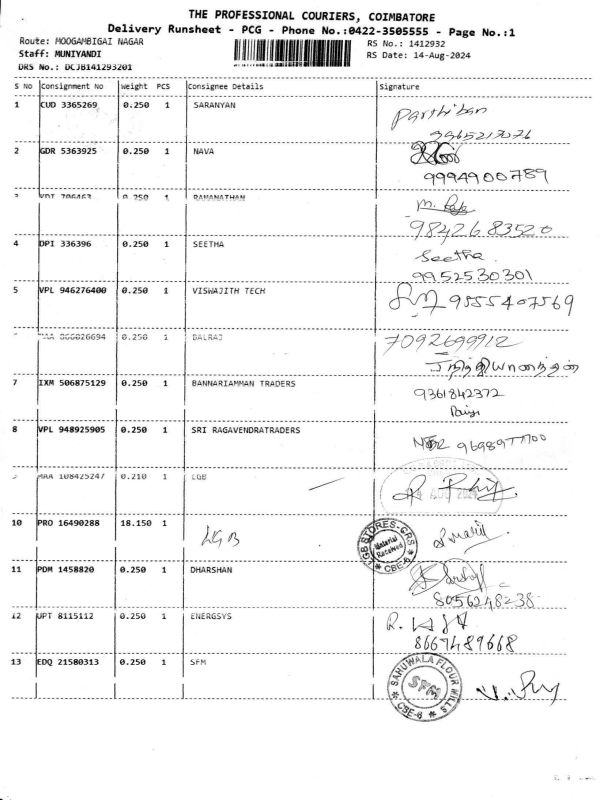 THE PROFESSIONAL COURIERS, COIMBATORE
Delivery Runsheet - PCG - Phone No.:0422-3505555 - Page No.:1
Route: MOOGAMBIGAI NAGAR
RS No.: 1412932
Staff: MUNIYANDI
RS Date: 14-Aug-2024
DRS No.: DCJB141293201
S No Consignment No Weight PCS Consignee Details Signature
1 CUD 3365269 0.250 1 SARANYAN Parthiban
2 GDR 5363925 0.250 1 NAVA
9994900789
0.250 1 RAMANATHAN M.
9842683520
4 DPI 336396 0.250 1 SEETHA Seetha
9952530301
5 VPL 946276400 0.250 1 VISWAJITH TECH 9555407569
0.250 1 DALRAJ 7092699912
7 IXM 506875129 0.250 1 BANNARIAMMAN TRADERS 9361842372
8 VPL 948925905 0.250 1 SRI RAGAVENDRATRADERS
MAA 108425247 0.210 1 LGB
10 PRO 16490288 18.150 1 LGB
LGB STORES-CRS
Material
Received
CBE-6
11 PDM 1458820 0.250 1 DHARSHAN
8056248238
12 UPT 8115112 0.250 1 ENERGSYS R.
8667489668
13 EDQ 21580313 0.250 1 SFM
SAHUWALA FLOUR MILLS
SFM
CBE-6